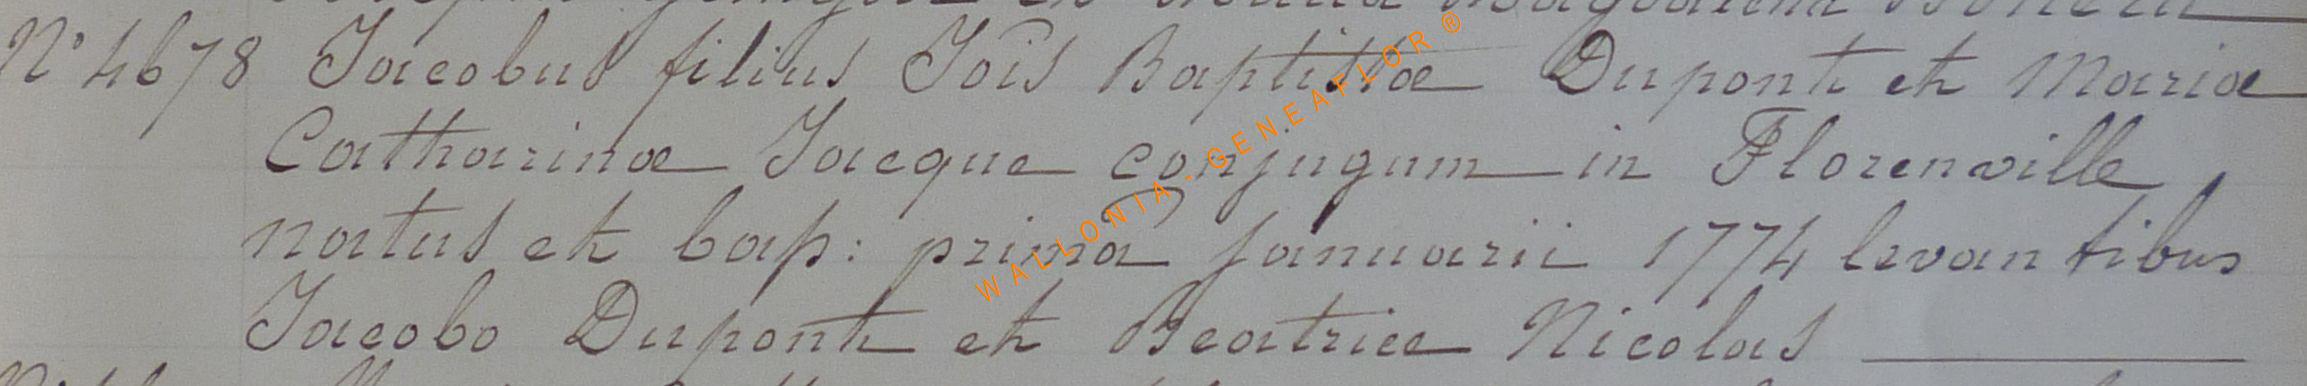 N° 4678 Jacobus filius Jois Baptistæ Dupont et Mariæ
Catharinæ Jacque conjugum in Florenville
natus et bap: primâ januarii 1774 levantibus
Jacobo Dupont et Beatrice Nicolas
WALLONIA - GENEAFLOR ®